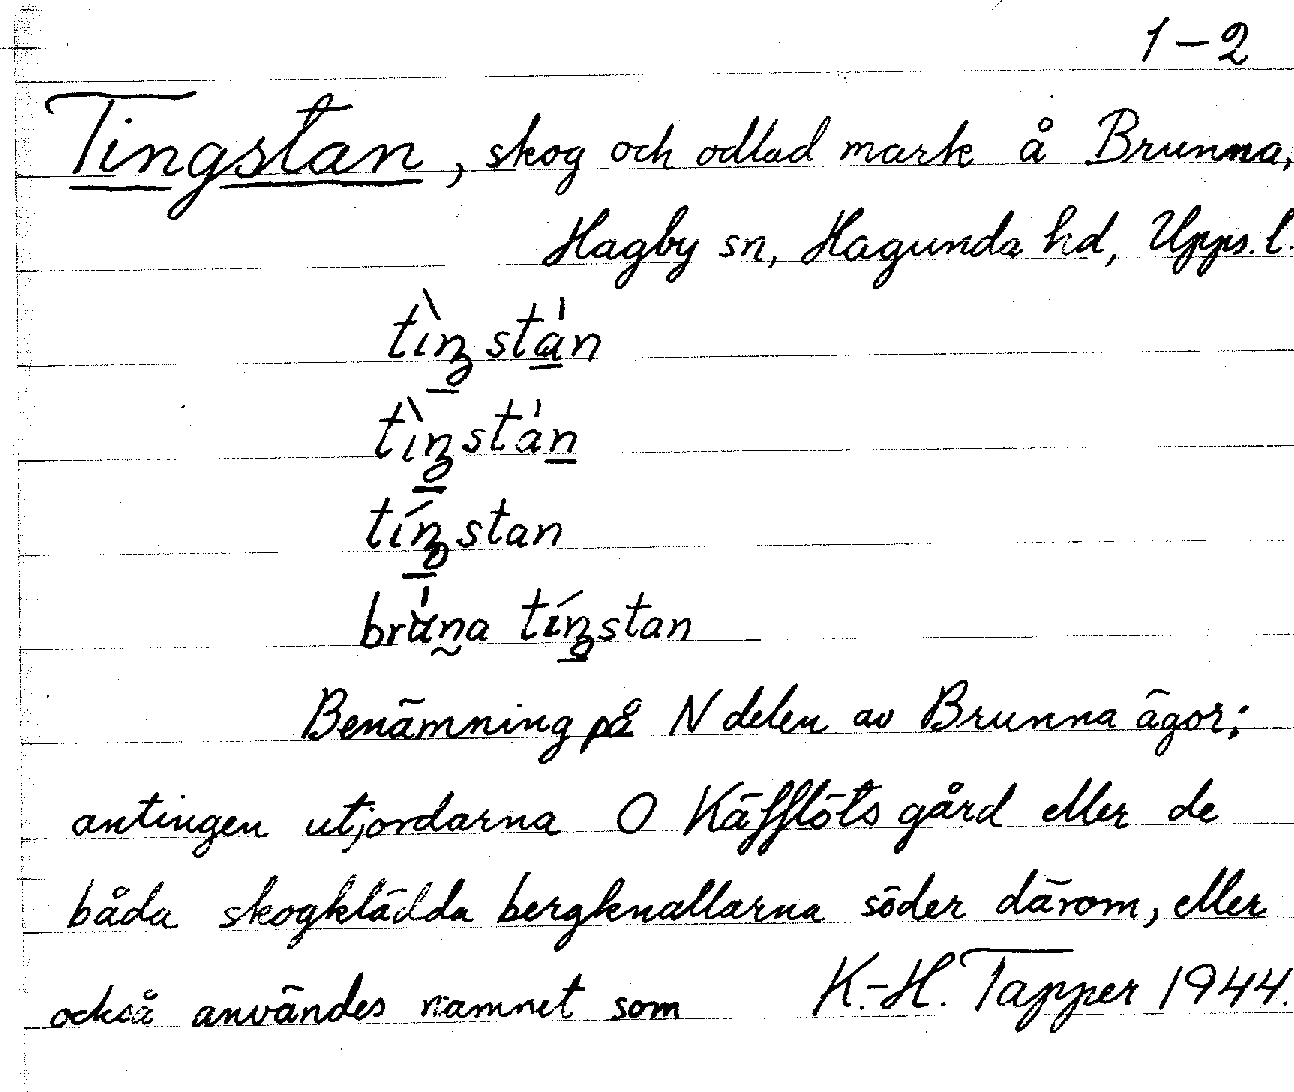 1-2
Tingstan, skog och odlad mark å Brunna,
Hagby sn, Hagunda hd, Upps. l.
tìŋstán
tìŋstán
tíŋstan
brùn̰a tíŋstan
Benämning på N delen av Brunna ägor;
antingen utjordarna O Käfflöts gård eller de
båda skogklädda bergknallarna söder därom, eller
också användes namnet som K.-H. Tapper 1944.